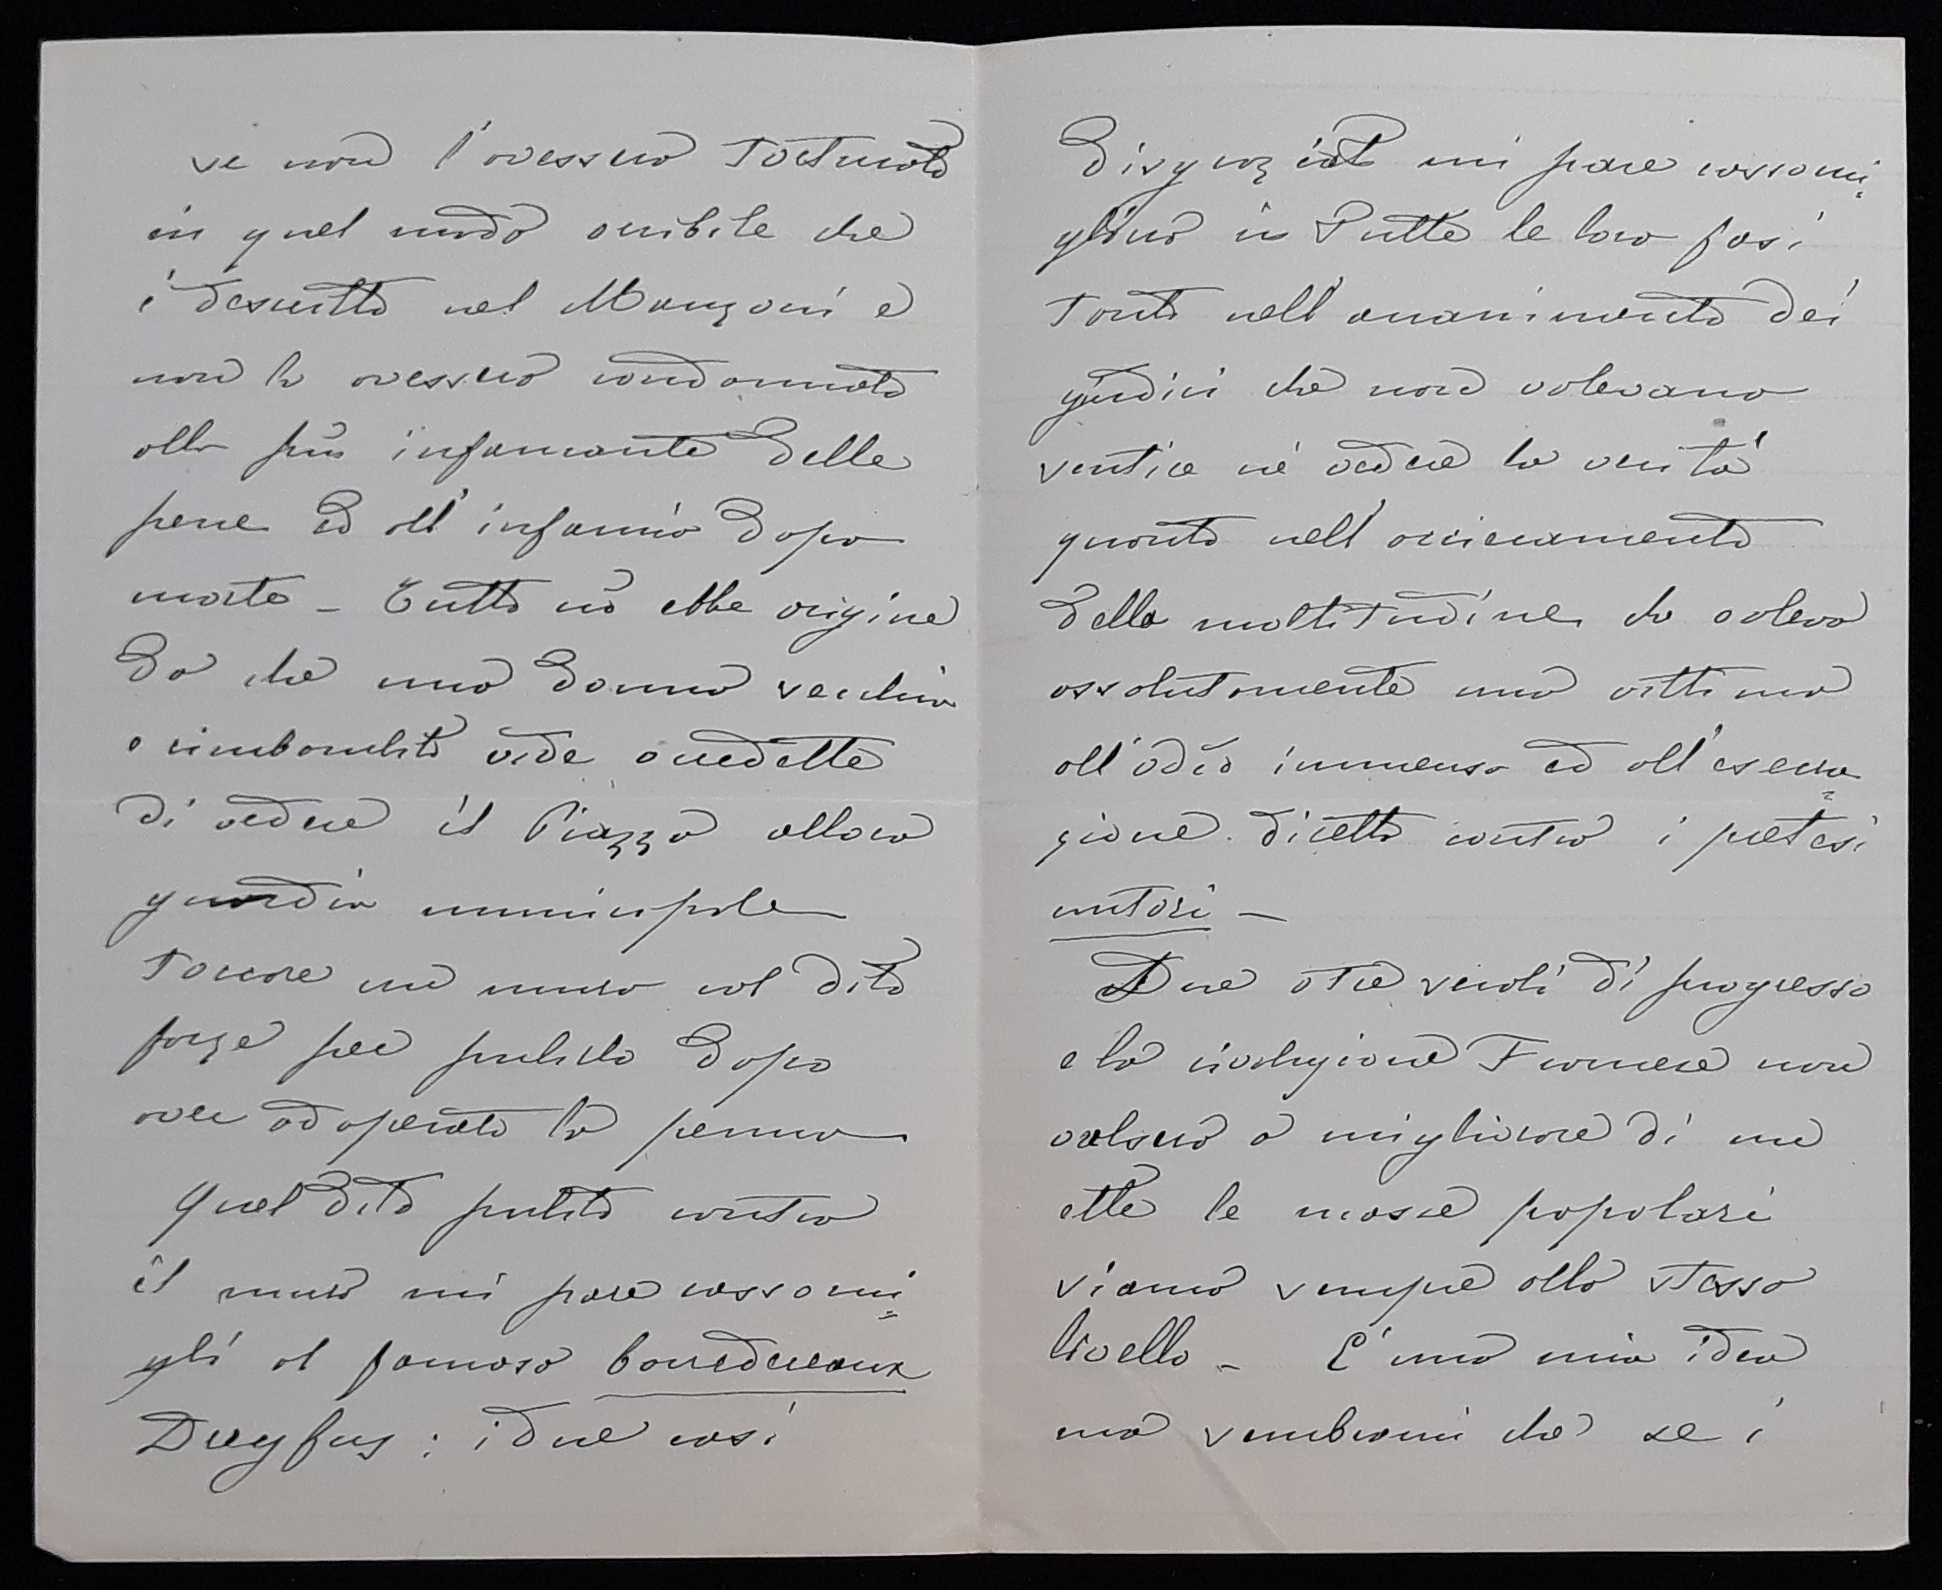 se non l'avessero torturato
in quel modo orribile che
è descritto nel Manzoni e
non lo avessero condannato
alla più infamante delle
pene ed all'infamia dopo
morte – Tutto ciò ebbe origine
da che una donna vecchia
e rimbambita vide o credette
di vedere il Piazza allora
guardia municipale
toccare un muro col dito
forse per pulirlo dopo
aver adoperato la penna
Quel dito pulito contro
il muro mi pare rassomi=
gli al famoso bourdereaux
Dreyfus: i due casi
disgraziati mi pare rassomi=
glino in tutte le loro fasi
tanto nell'
giudici che non volevano
sentire nè vedere la verità
quanto nell'accecamento
della moltitudine che voleva
assolutamente una vittima
all'odio immenso ed all'esecra=
zione diretta contro i pretesi
untori –
Due o tre secoli di progresso
e la rivoluzione Francese non
valsero a migliorare di un
ette le masse popolari
siamo sempre allo stesso
livello – È una mia idea
ma sembrami che se i